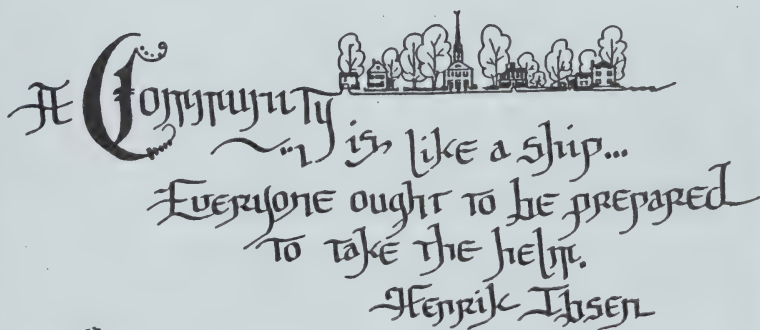 A Community
is like a ship...
Everyone ought to be prepared
to take the helm.
Henrik Ibsen